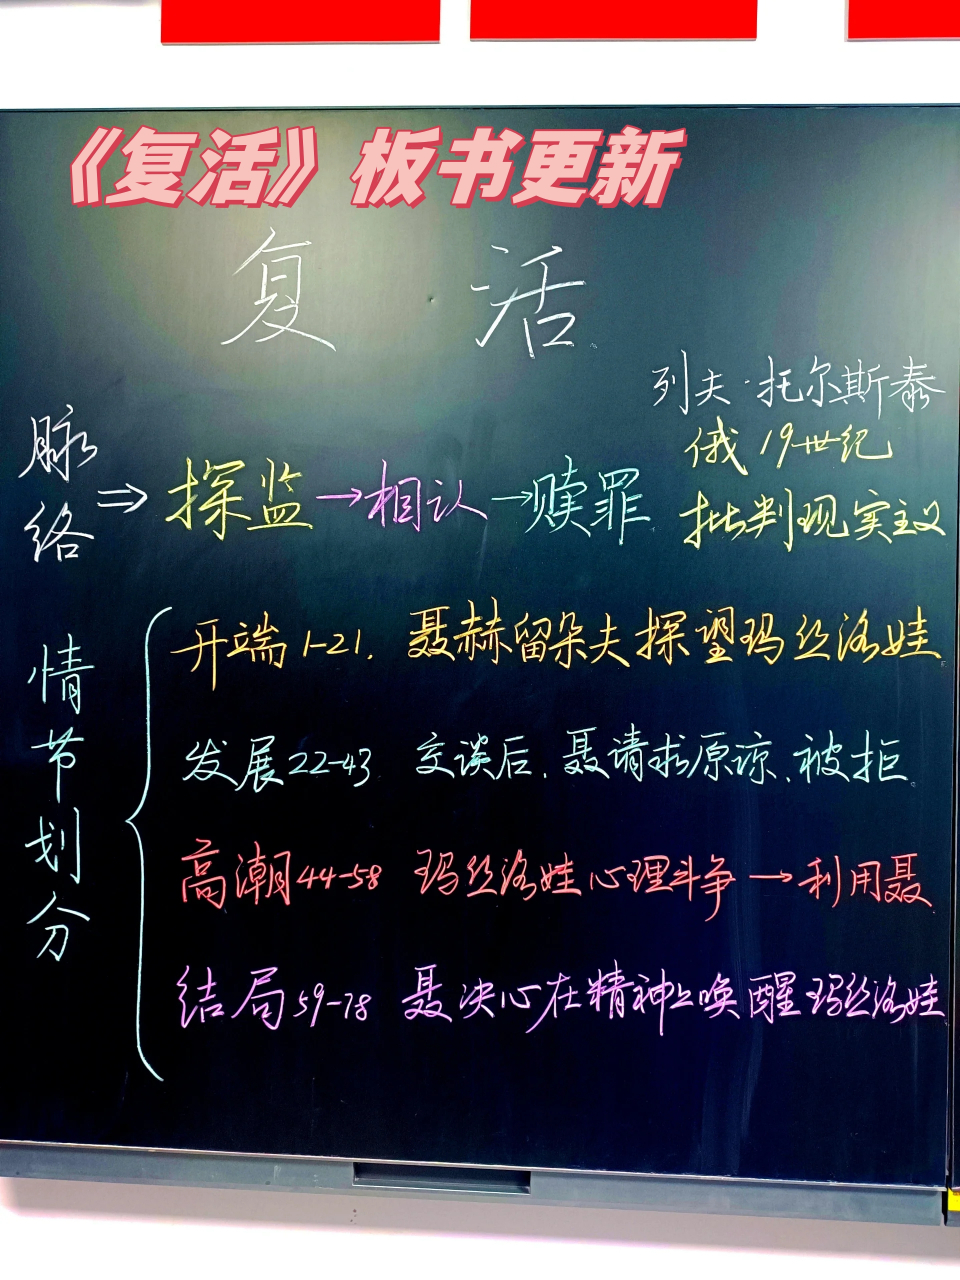 《复活》板书更新
复活
列夫·托尔斯泰
俄19世纪
批判现实主义
脉络⇒探监→相认→赎罪
情节划分
开端1-21. 聂赫留朵夫探望玛丝洛娃
发展22-43 交谈后、聂请求原谅、被拒
高潮44-58 玛丝洛娃心理斗争→利用聂
结局59-78 聂决心在精神上唤醒玛丝洛娃